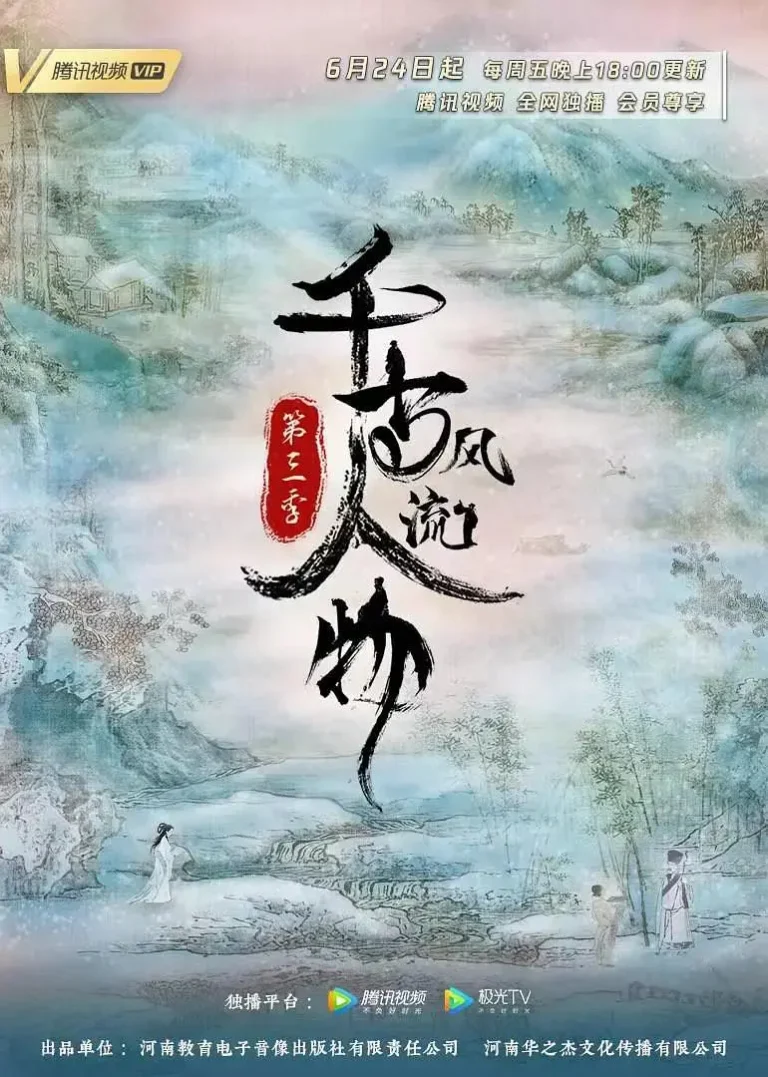 腾讯视频 VIP
6月24日起 每周五晚上18:00更新
腾讯视频 全网独播 会员尊享
千古风流人物
第三季
独播平台： 腾讯视频 不负好时光 极光TV 不负好时光
出品单位： 河南教育电子音像出版社有限责任公司 河南华之杰文化传播有限公司